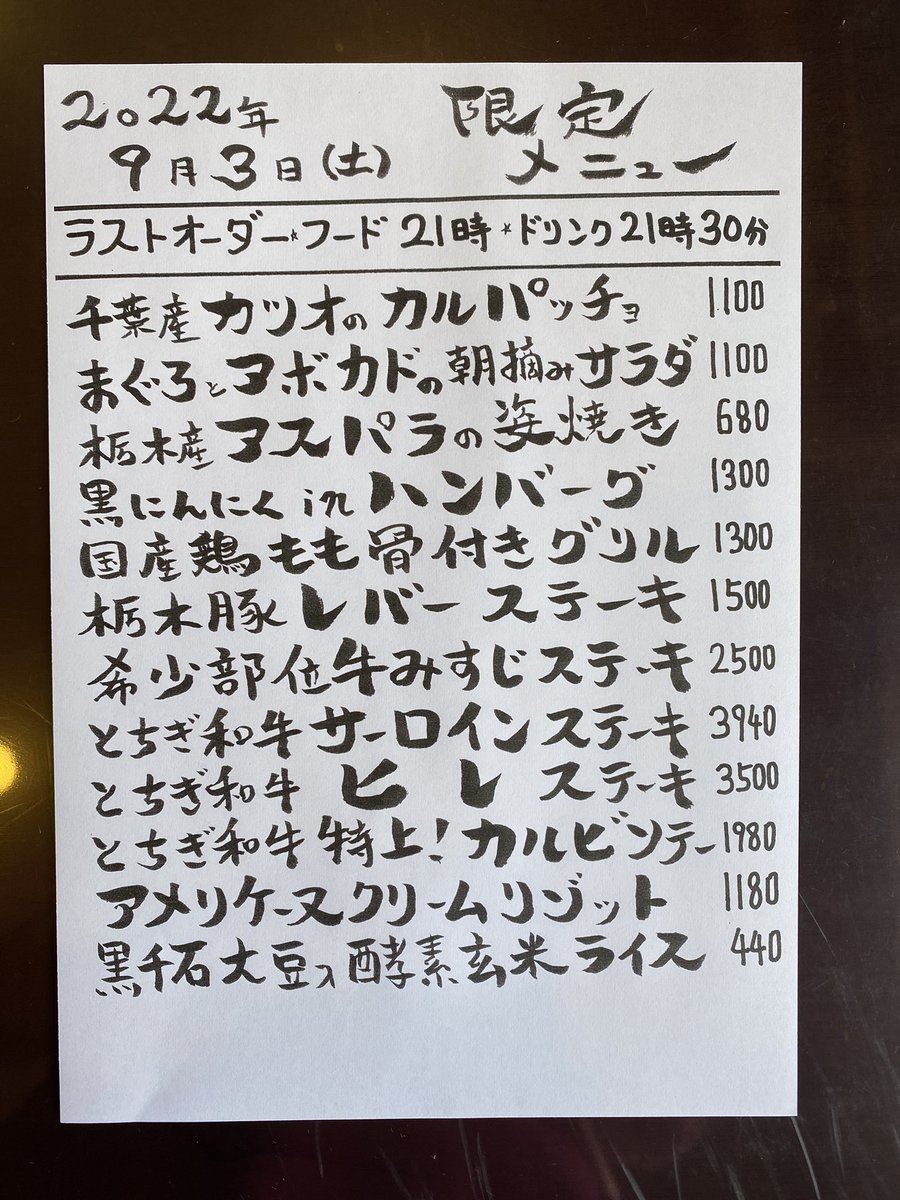 2022年 限定
9月3日(土) メニュー
ラストオーダー★フード 21時 ★ドリンク21時30分
千葉産 カツオのカルパッチョ 1100
まぐろとアボカドの朝摘みサラダ 1100
栃木産 アスパラの姿焼き 680
黒にんにく in ハンバーグ 1300
国産鶏もも骨付きグリル 1300
栃木豚 レバーステーキ 1500
希少部位牛みすじステーキ 2500
とちぎ和牛 サーロインステーキ 3940
とちぎ和牛 ヒレステーキ 3500
とちぎ和牛 特上!カルビソテー 1980
アメリケーヌクリームリゾット 1180
黒千石大豆入酵素玄米ライス 440